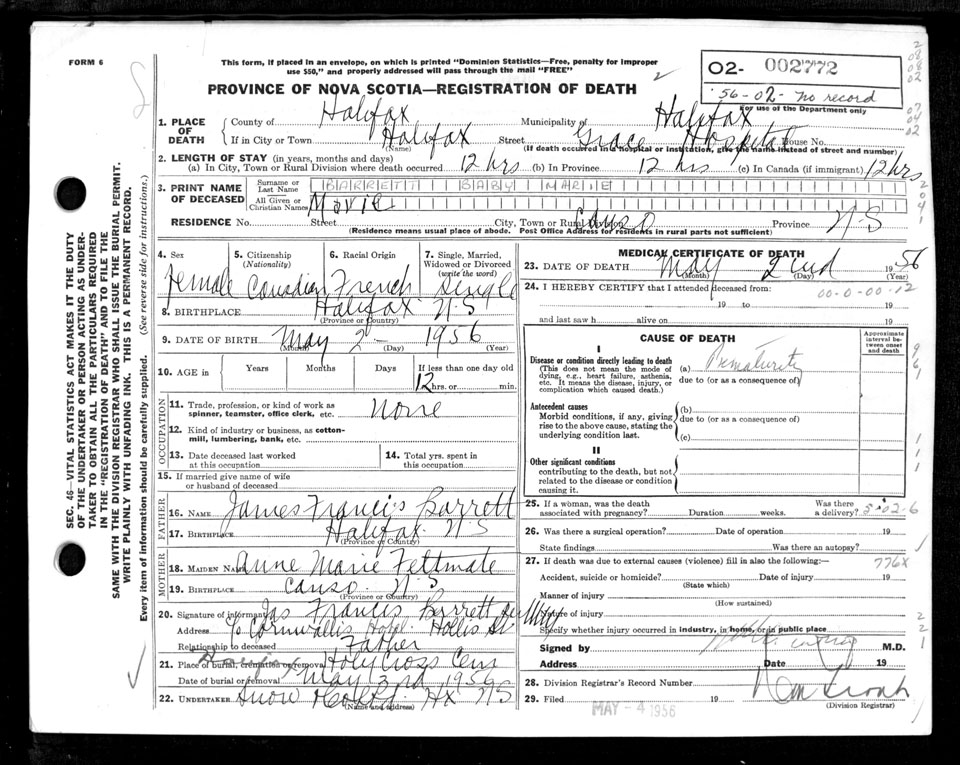 FORM 6
This form, if placed in an envelope, on which is printed "Dominion Statistics—Free, penalty for improper
use $50," and properly addressed will pass through the mail "FREE"
O2- 002772
56-02- no record
For use of the Department only
PROVINCE OF NOVA SCOTIA—REGISTRATION OF DEATH
1. PLACE OF DEATH
County of Halifax Municipality of Halifax
If in City or Town Halifax Street Grace Hospital House No.
(Name) (If death occurred in a hospital or institution, give the name instead of street and number)
2. LENGTH OF STAY (in years, months and days)
(a) In City, Town or Rural Division where death occurred 12 hrs (b) In Province 12 hrs (c) In Canada (if immigrant) 12 hrs
3. PRINT NAME OF DECEASED
Surname or Last Name BARRETT BABY MARIE
All Given or Christian Names Marie
RESIDENCE No. Street City, Town or Rural Division Canso Province N S
(Residence means usual place of abode. Post Office Address for residents in rural parts not sufficient)
4. Sex Female
5. Citizenship (Nationality) Canadian
6. Racial Origin French
7. Single, Married, Widowed or Divorced (write the word) Single
8. BIRTHPLACE Halifax N-S
(Province or Country)
9. DATE OF BIRTH May 2- 1956
(Month) (Day) (Year)
10. AGE in Years Months Days If less than one day old
12 hrs. or min.
OCCUPATION
11. Trade, profession, or kind of work as
spinner, teamster, office clerk, etc. None
12. Kind of industry or business, as cotton-
mill, lumbering, bank, etc.
13. Date deceased last worked
at this occupation
14. Total yrs. spent in
this occupation
15. If married give name of wife
or husband of deceased
FATHER
16. NAME James Francis Barrett
17. BIRTHPLACE Halifax N S
(Province or Country)
MOTHER
18. MAIDEN NAME Anne Marie Fettmate
19. BIRTHPLACE Canso N. S
(Province or Country)
20. Signature of informant Jas Francis Barrett
Address c/o Cornwallis Hotel Hollis St
Relationship to deceased Father
21. Place of burial, cremation or removal Holy Cross Cem
Date of burial or removal May 3rd 1956
22. UNDERTAKER Snow Hx NS
(Name and address)
MEDICAL CERTIFICATE OF DEATH
23. DATE OF DEATH May 2nd 1956
(Month) (Day) (Year)
24. I HEREBY CERTIFY that I attended deceased from: 00-0-00-12
19 to 19
and last saw h alive on 19
CAUSE OF DEATH
Approximate interval between onset and death
I
Disease or condition directly leading to death
(This does not mean the mode of
dying, e.g., heart failure, asthenia,
etc. It means the disease, injury, or
complication which caused death.)
(a) Prematurity
due to (or as a consequence of)
Antecedent causes
Morbid conditions, if any, giving
rise to the above cause, stating the
underlying condition last.
(b)
due to (or as a consequence of)
(c)
II
Other significant conditions
contributing to the death, but not
related to the disease or condition
causing it.
25. If a woman, was the death
associated with pregnancy? Duration weeks.
Was there
a delivery? 5-02-6
26. Was there a surgical operation? Date of operation 19
State findings Was there an autopsy?
27. If death was due to external causes (violence) fill in also the following:— 776X
Accident, suicide or homicide? Date of injury 19
(State which)
Manner of injury
(How sustained)
Nature of injury
Specify whether injury occurred in industry, in home, or in public place
Signed by M.D.
Address Date 19
28. Division Registrar's Record Number
29. Filed MAY - 4 1956 19
(Division Registrar)
SEC. 46—VITAL STATISTICS ACT MAKES IT THE DUTY
OF THE UNDERTAKER OR PERSON ACTING AS UNDER-
TAKER TO OBTAIN ALL THE PARTICULARS REQUIRED
IN THE "REGISTRATION OF DEATH" AND TO FILE THE
SAME WITH THE DIVISION REGISTRAR WHO SHALL ISSUE THE BURIAL PERMIT.
WRITE PLAINLY WITH UNFADING INK. THIS IS A PERMANENT RECORD.
Every item of information should be carefully supplied. (See reverse side for instructions.)